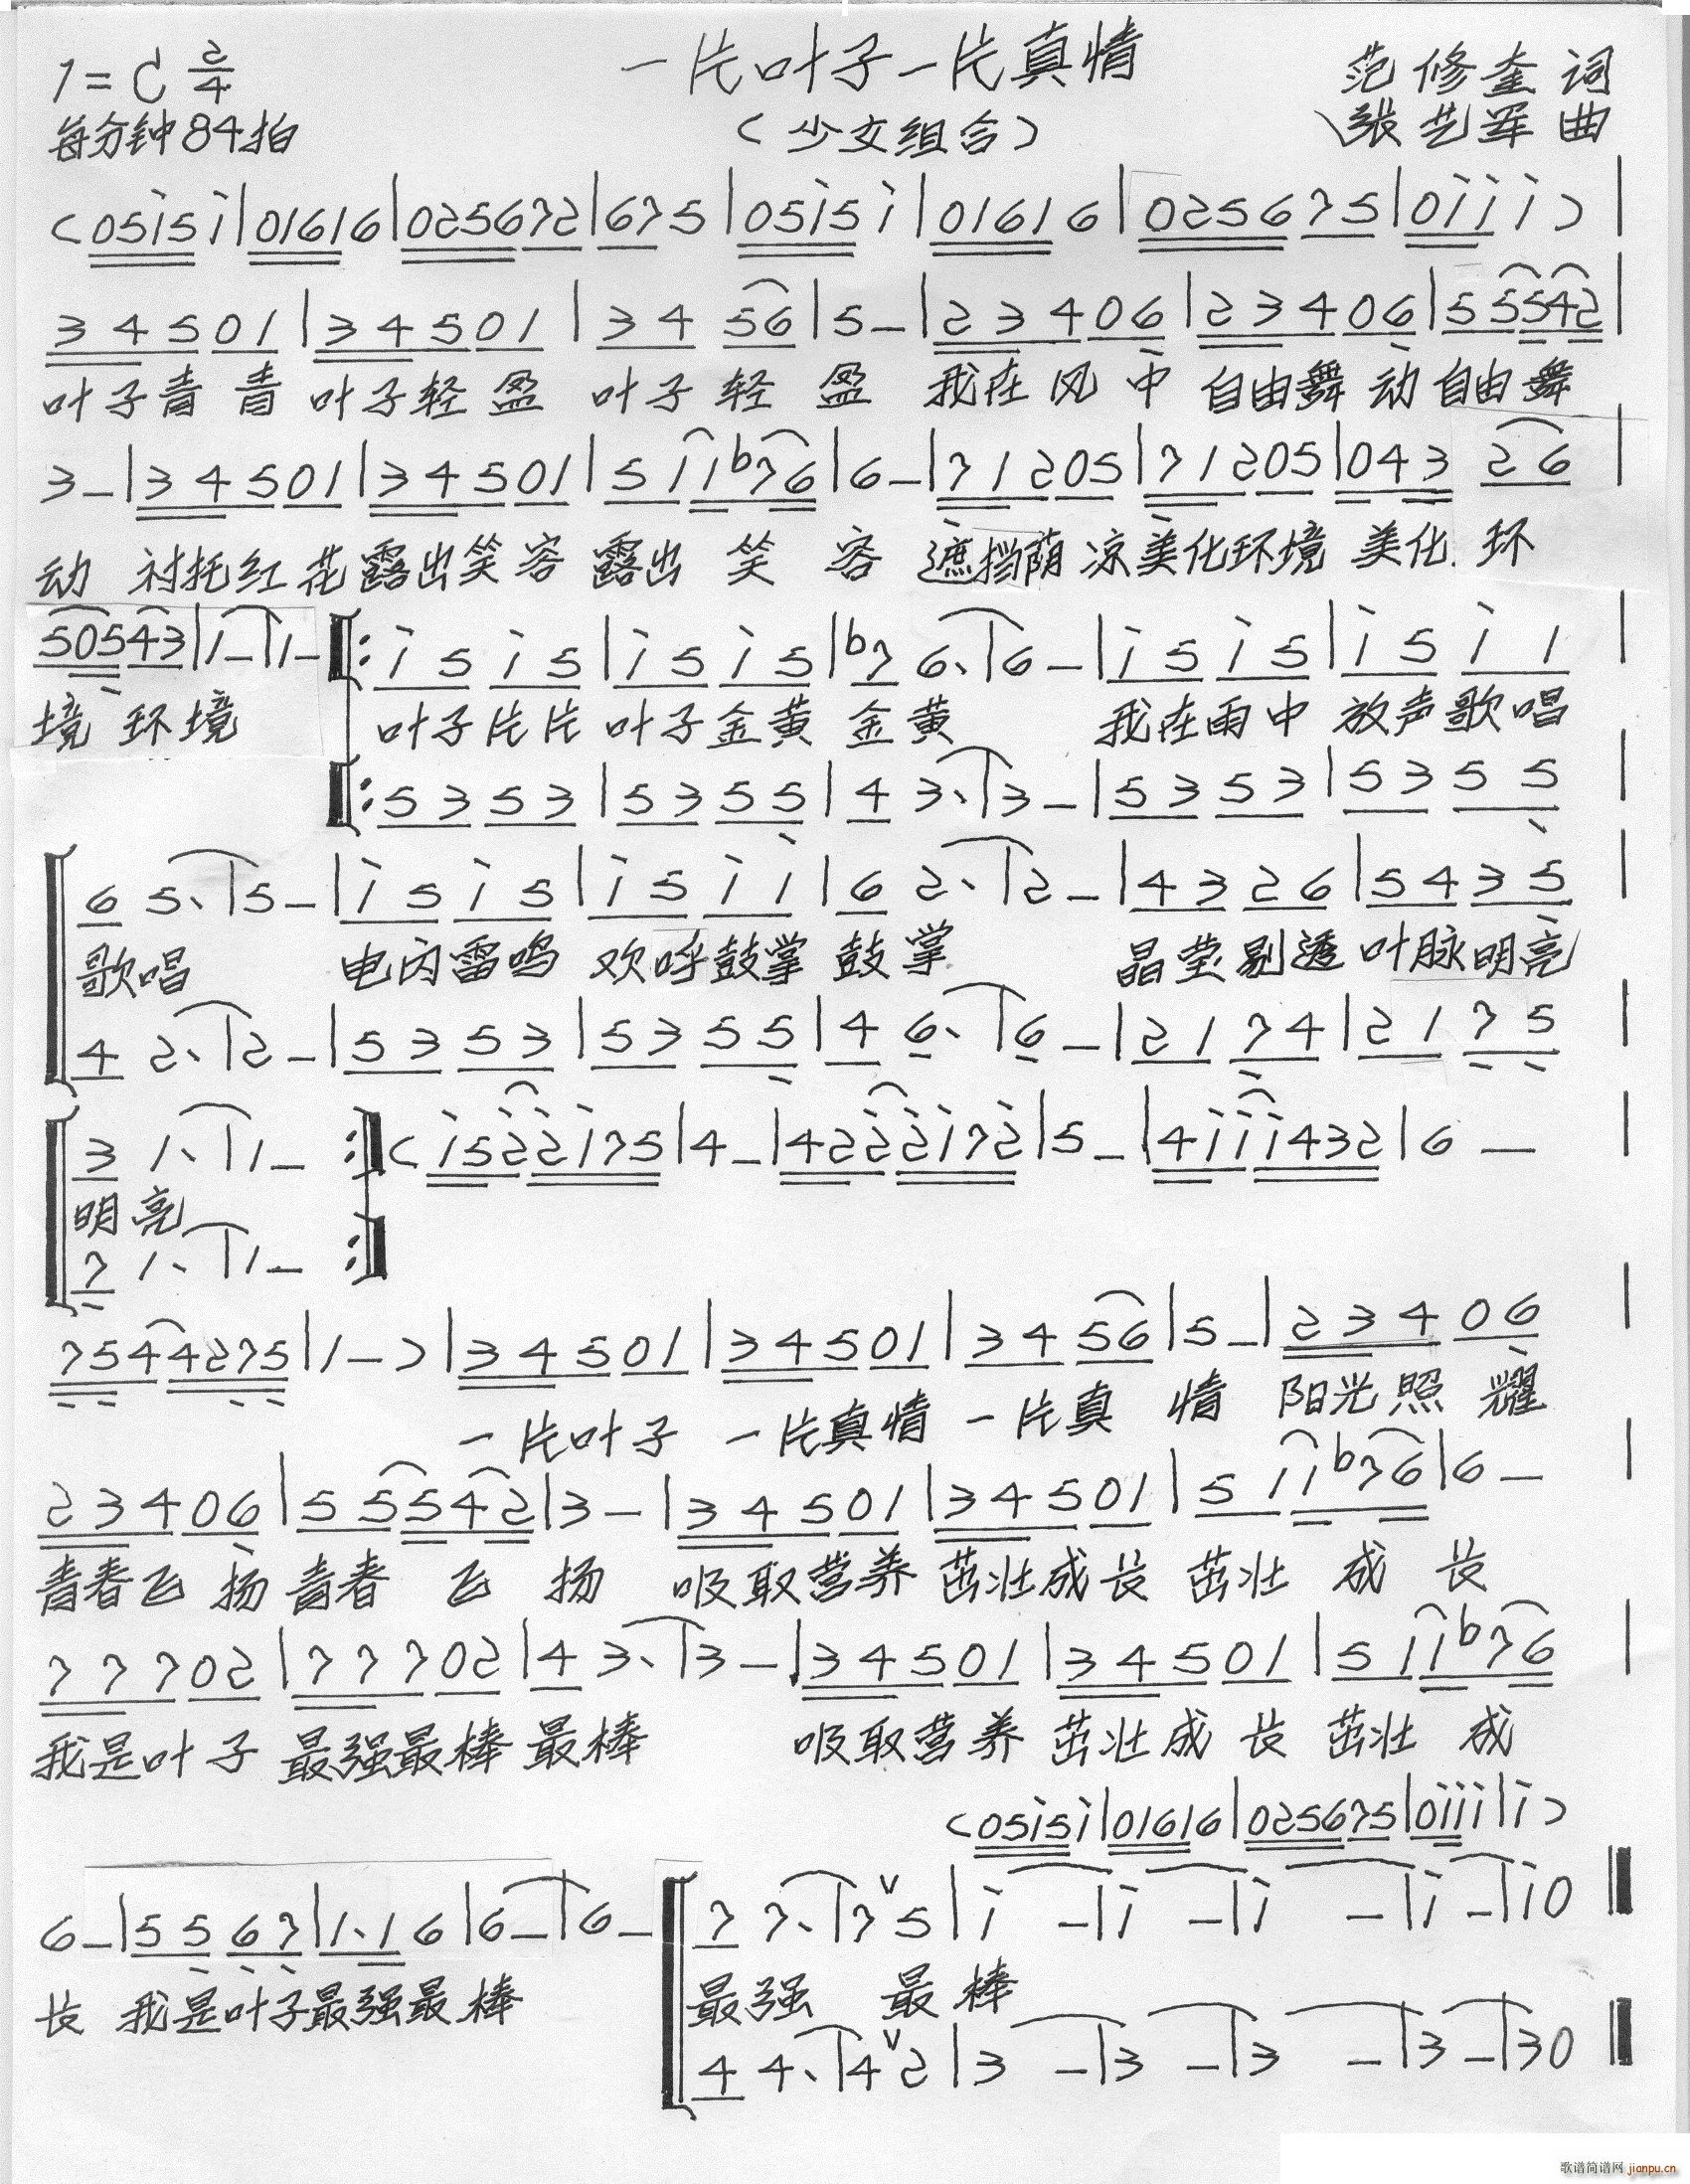 一片叶子一片真情
1=C 2/4
范修奎 词
每分钟84拍
(少文组合)
张艺军 曲
(05i5i|01616|025672|675|05i5i|01616|025675|0iii)|
34501|34501|3456|5-|23406|23406|55542|
叶子青青叶子轻盈 叶子轻盈 我在风中 自由舞动自由舞
3-|34501|34501|511b76|6-|71205|71205|04326|
动 衬托红花露出笑容 露出笑容 遮挡荫凉美化环境 美化环
50543|1-|1-|:i5i5|i5i5|b76.|6-|i5i5|i5i1|
境 环境 叶子片片 叶子金黄 金黄 我在雨中 放声歌唱
|:5353|5355|43.|3-|5353|5355|
65.|5-|i5i5|i5ii|62.|2-|4326|5435|
歌唱 电闪雷鸣 欢呼鼓掌 鼓掌 晶莹剔透 叶脉明亮
42.|2-|5353|5355|46.|6-|2174|2175|
31.|1-:|(i522i75|4-|4222i72|5-|4iii432|6-|
明亮
71.|1-:|
7544275|1-)|34501|34501|3456|5-|23406|
一片叶子 一片真情 一片真情 阳光照耀
23406|55542|3-|34501|34501|511b76|6-|
青春飞扬 青春飞扬 吸取营养 茁壮成长 茁壮成长
77702|77702|43.|3-|34501|34501|511b76|
我是叶子 最强最棒 最棒 吸取营养 茁壮成长 茁壮成
(05i5i|01616|025675|0iii|i)
6-|5567|1.16|6-|6-|77.|7∨5|i-|i-|i-|i-|i0‖
长 我是叶子最强最棒 最强 最棒
44.|4∨2|3-|3-|3-|3-|30‖
歌谱简谱网 jianpu.cn